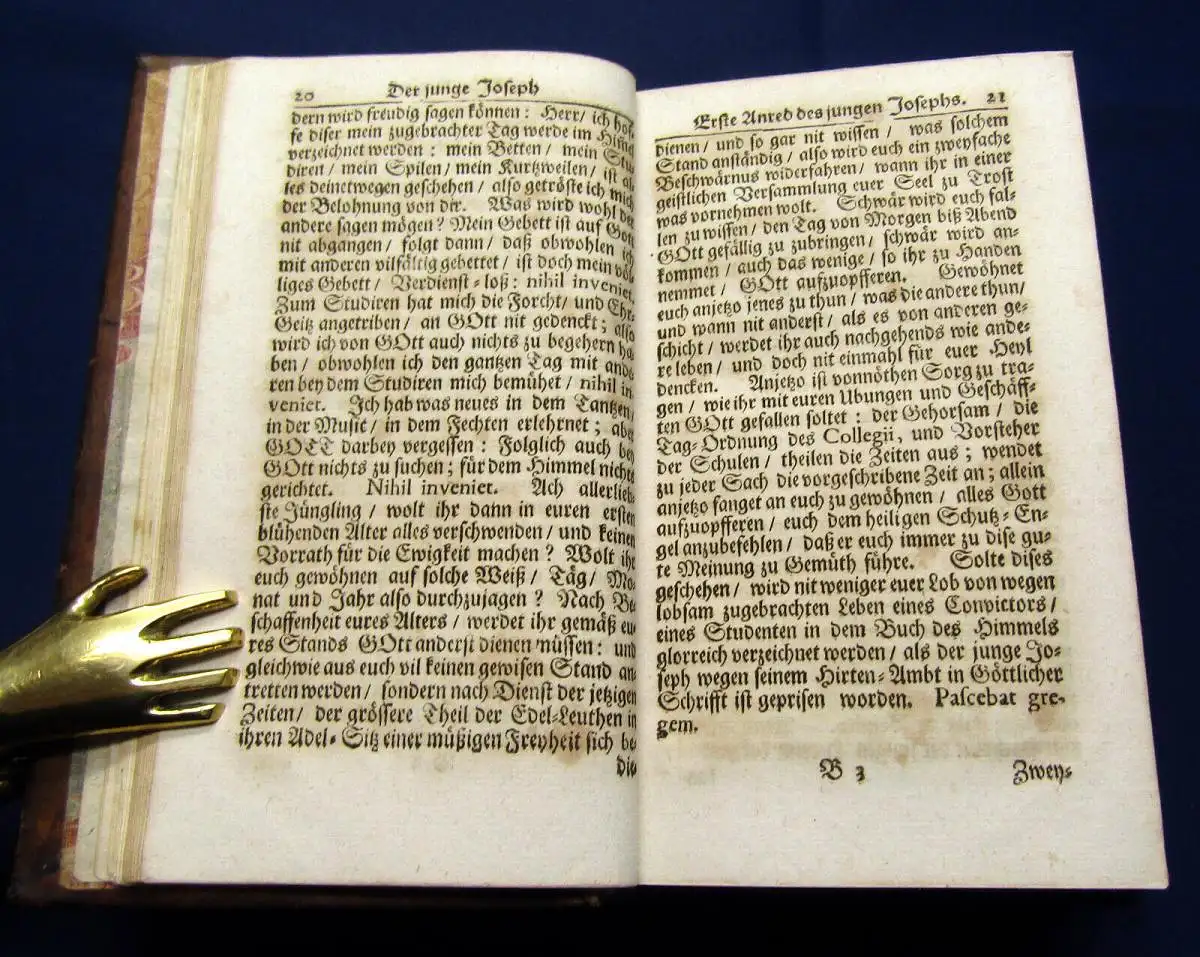 20 Der junge Joseph
dern wird freudig sagen können: Herr/ ich hof-
fe diser mein zugebrachter Tag werde im Himel
verzeichnet werden: mein Betten/ mein Stu-
diren/ mein Spilen/ mein Kurtzweilen/ ist al-
les deinetwegen geschehen/ also getröste ich mich
der Belohnung von dir. Was wird wohl der
andere sagen mögen? Mein Gebett ist auf Gott
nit abgangen/ folgt dann/ daß obwohlen ich
mit anderen vilfältig gebettet/ ist doch mein völ-
liges Gebett/ Verdienst-loß: nihil inveniet.
Zum Studiren hat mich die Forcht/ und Ehr-
Geitz angetriben/ an GOtt nit gedenckt; also
wird ich von GOtt auch nichts zu begehern ha-
ben/ obwohlen ich den gantzen Tag mit ande-
ren bey dem Studiren mich bemühet/ nihil in-
veniet. Ich hab was neues in dem Tantzen/
in der Music/ in dem Fechten erlehrnet; aber
GOTT darbey vergessen: Folglich auch bey
GOtt nichts zu suchen; für dem Himmel nichts
gerichtet. Nihil inveniet. Ach allerlieb-
ste Jüngling/ wolt ihr dann in euren ersten
blühenden Alter alles verschwenden/ und keinen
Vorrath für die Ewigkeit machen? Wolt ihr
euch gewöhnen auf solche Weiß/ Täg/ Mo-
nat und Jahr also durchzujagen? Nach Be-
schaffenheit eures Alters/ werdet ihr gemäß eu-
res Stands GOtt anderst dienen müssen: und
gleichwie aus euch vil keinen gewisen Stand an-
tretten werden/ sondern nach Dienst der jetzigen
Zeiten/ der grössere Theil der Edel-Leuthen in
ihren Adel-Sitz einer müßigen Freyheit sich be-
die-
Erste Anred des jungen Josephs. 21
dienen/ und so gar nit wissen/ was solchem
Stand anständig/ also wird euch ein zweyfache
Beschwärnus widerfahren/ wann ihr in einer
geistlichen Versammlung euer Seel zu Trost
was vornehmen wolt. Schwär wird euch fal-
len zu wissen/ den Tag von Morgen biß Abend
GOtt gefällig zu zubringen/ schwär wird an-
kommen/ auch das wenige/ so ihr zu Handen
nemmet/ GOtt aufzuopfferen. Gewöhnet
euch anjetzo jenes zu thun/ was die andere thun/
und wann nit anderst/ als es von anderen ge-
schicht/ werdet ihr auch nachgehends wie ande-
re leben/ und doch nit einmahl für euer Heyl
dencken. Anjetzo ist vonnöthen Sorg zu tra-
gen/ wie ihr mit euren Ubungen und Geschäff-
ten GOtt gefallen soltet: der Gehorsam/ die
Tag-Ordnung des Collegii, und Vorsteher
der Schulen/ theilen die Zeiten aus; wendet
zu jeder Sach die vorgeschribene Zeit an; allein
anjetzo fanget an euch zu gewöhnen/ alles Gott
aufzuopfferen/ euch dem heiligen Schutz-En-
gel anzubefehlen/ daß er euch immer zu dise gu-
te Meinung zu Gemüth führe. Solte dises
geschehen/ wird nit weniger euer Lob von wegen
lobsam zugebrachten Leben eines Convictors/
eines Studenten in dem Buch des Himmels
glorreich verzeichnet werden/ als der junge Jo-
seph wegen seinem Hirten-Ambt in Göttlicher
Schrifft ist geprisen worden. Pascebat gre-
gem.
B 3 Zwey-